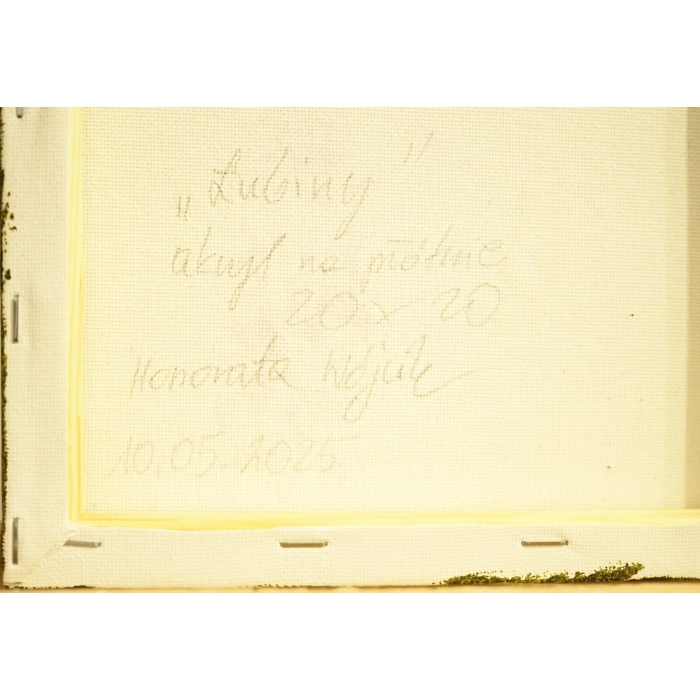 „Łubiny"
akryl na płótnie
20x20
Honorata Wójcik
10.05.2025